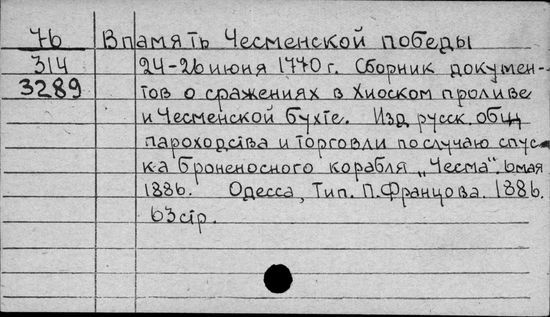 76 В память Чесменской победы
314 24-26 июня 1770 г. Сборник докумен-
3289 тов о сражениях в Хиоском проливе
и Чесменской бухте. Изд. русск. общ.
пароходства и торговли по случаю спус-
ка броненосного корабля „Чесма“. 6 мая
1886. Одесса, Тип. П. Францова. 1886.
63 стр.